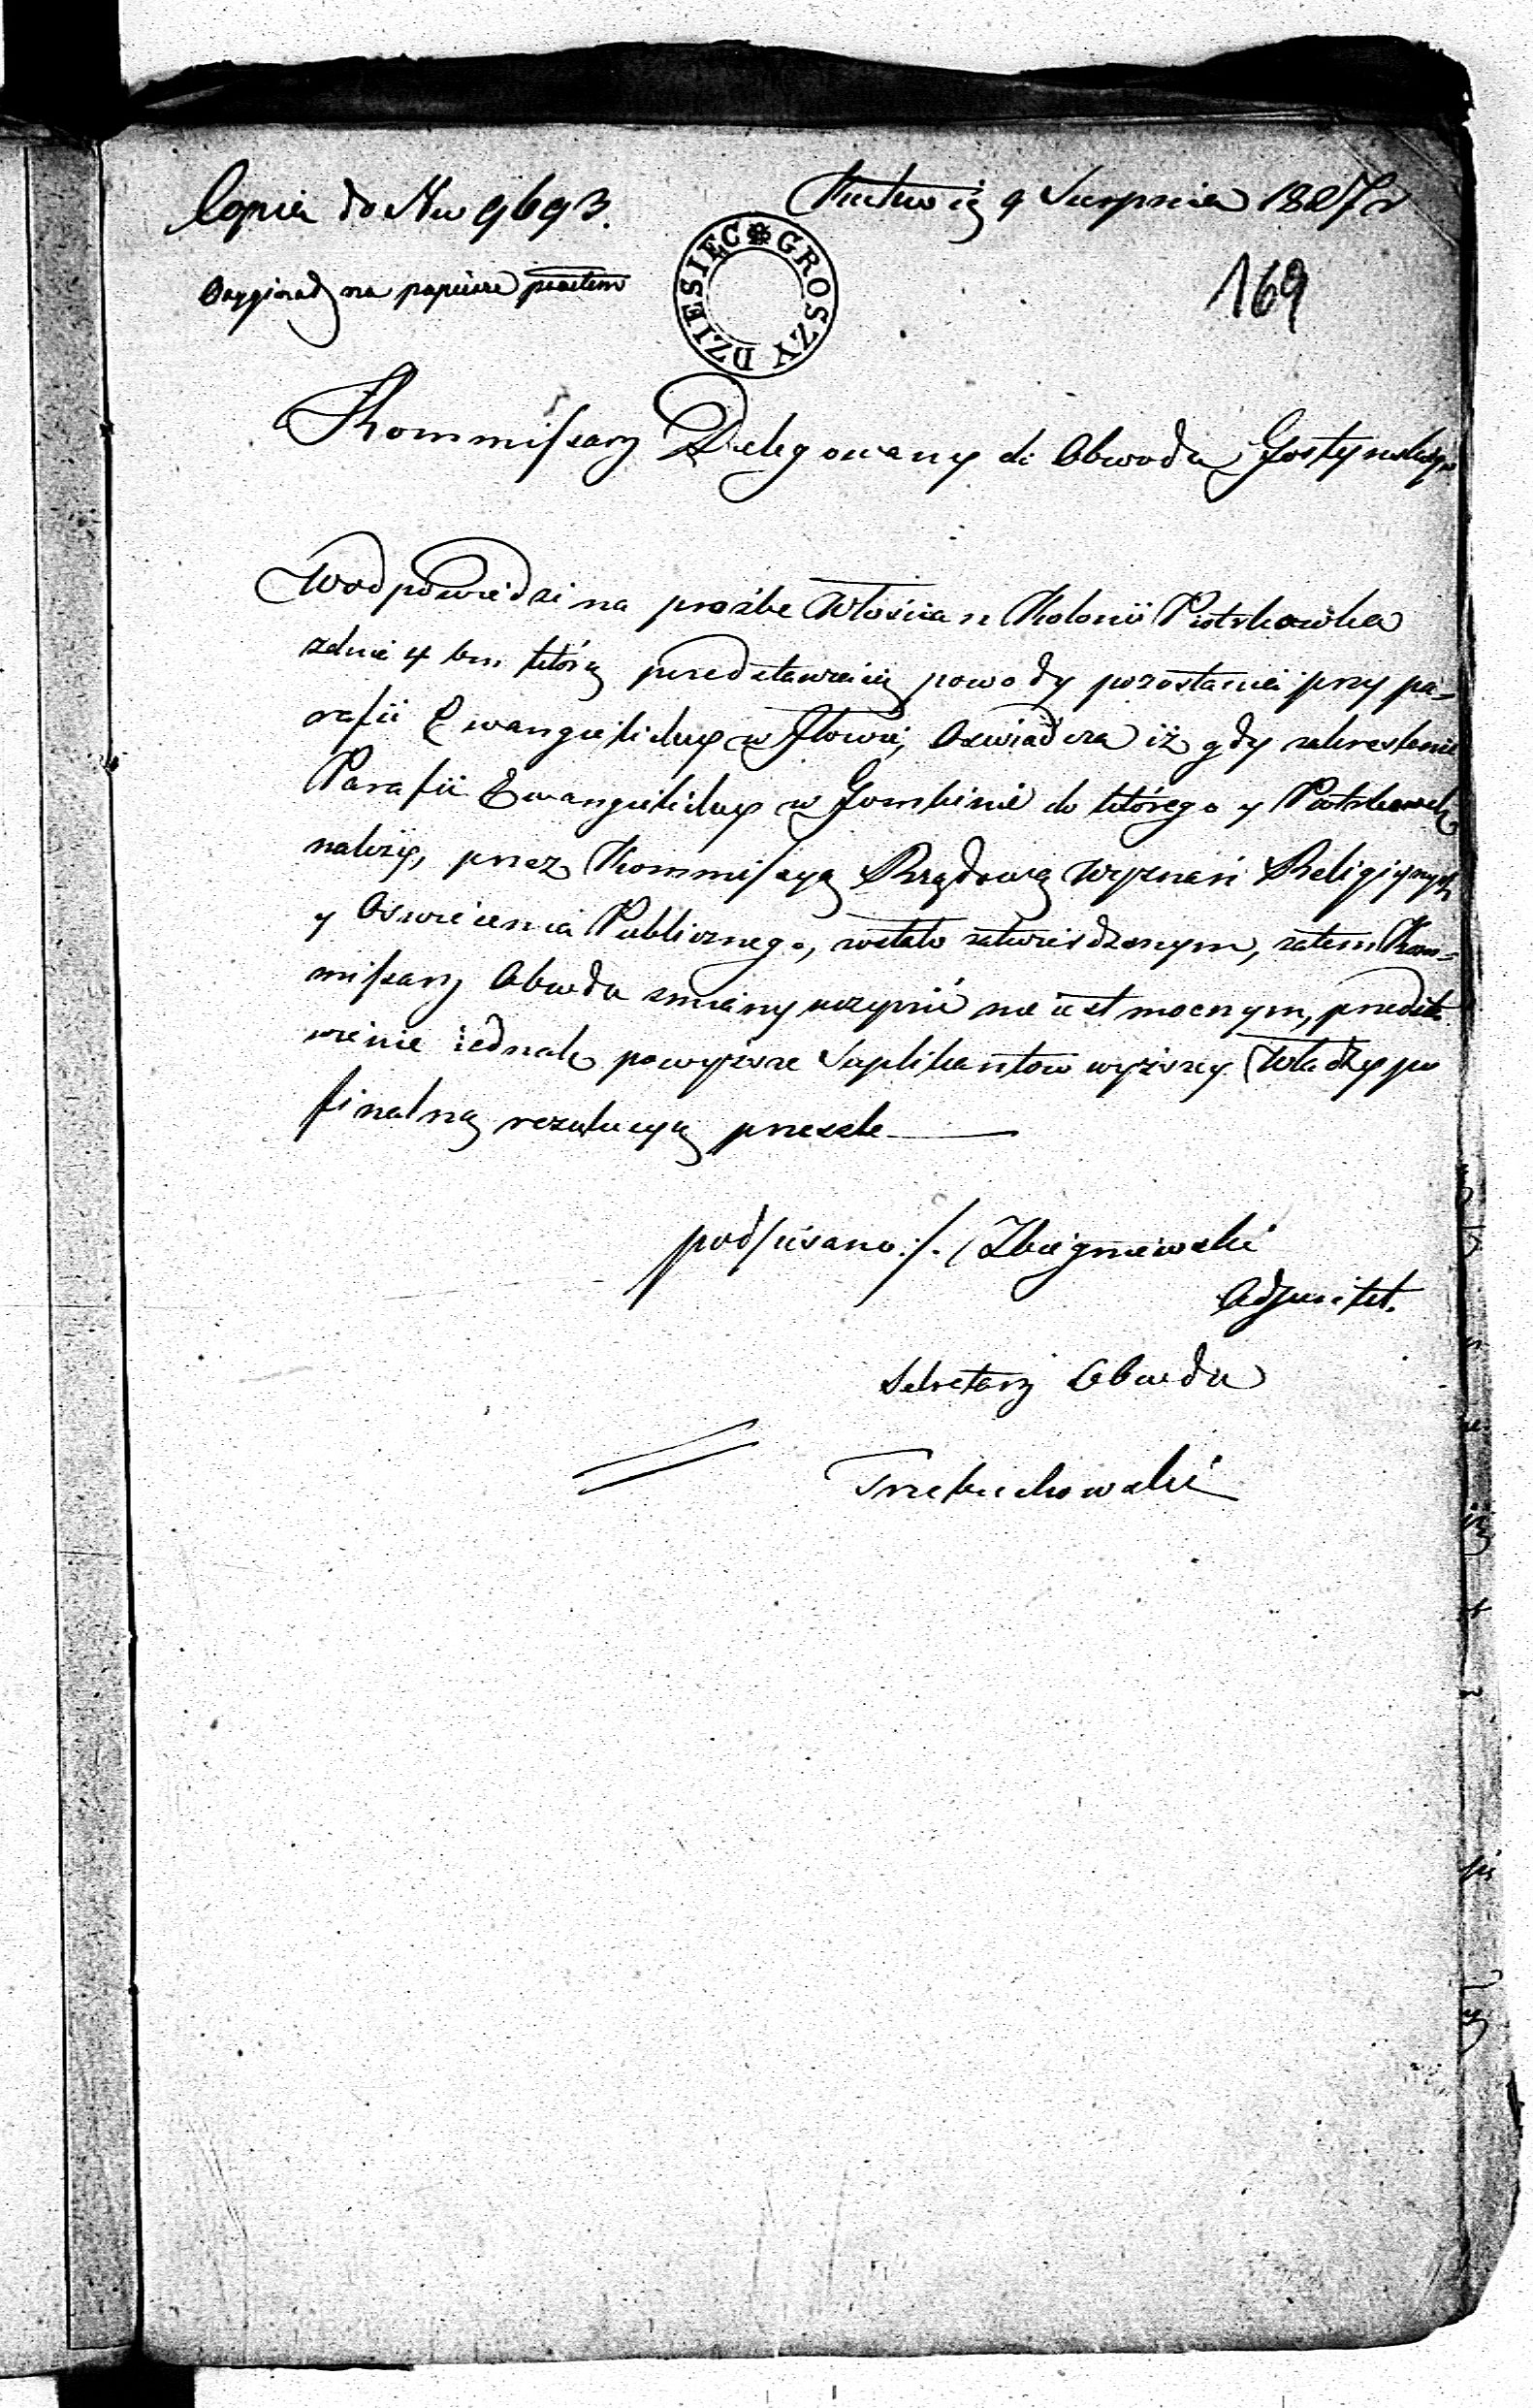 Copia do Nru 9693.
Kutno d. 9 Sierpnia 1827 r
Oryginał na papierze prostem
DZIESIĘC GROSZY
169
Kommissarz Delegowany do Obwodu Gostyńskiego
W odpowiedzi na prozbe Włościan Kolonii Piotrkowka
z dnia 4 bm. którą przedstawiaią powody pozostania przy pa-
rafii Ewangielickiey w Iłowie, Oswiadcza iż gdy zakreslenie
Parafii Ewangielickiey w Gombinie do którego y Piotrkowek
należy, przez Kommissyą Rządową Wyznań Religiynych
y Oswiecenia Publicznego, zostało zatwierdzonym, zatem Kom-
missarz Obwodu zmiany uczynić nie iest mocnym, przedsta
wienie iednak powyższe Suplikantow wyższey Władzy po
finalną rezolucyą przesle
podpisano :/. Zbigniewski
Adjunkt.
Sekretarz Obwodu
Trzebuchowski